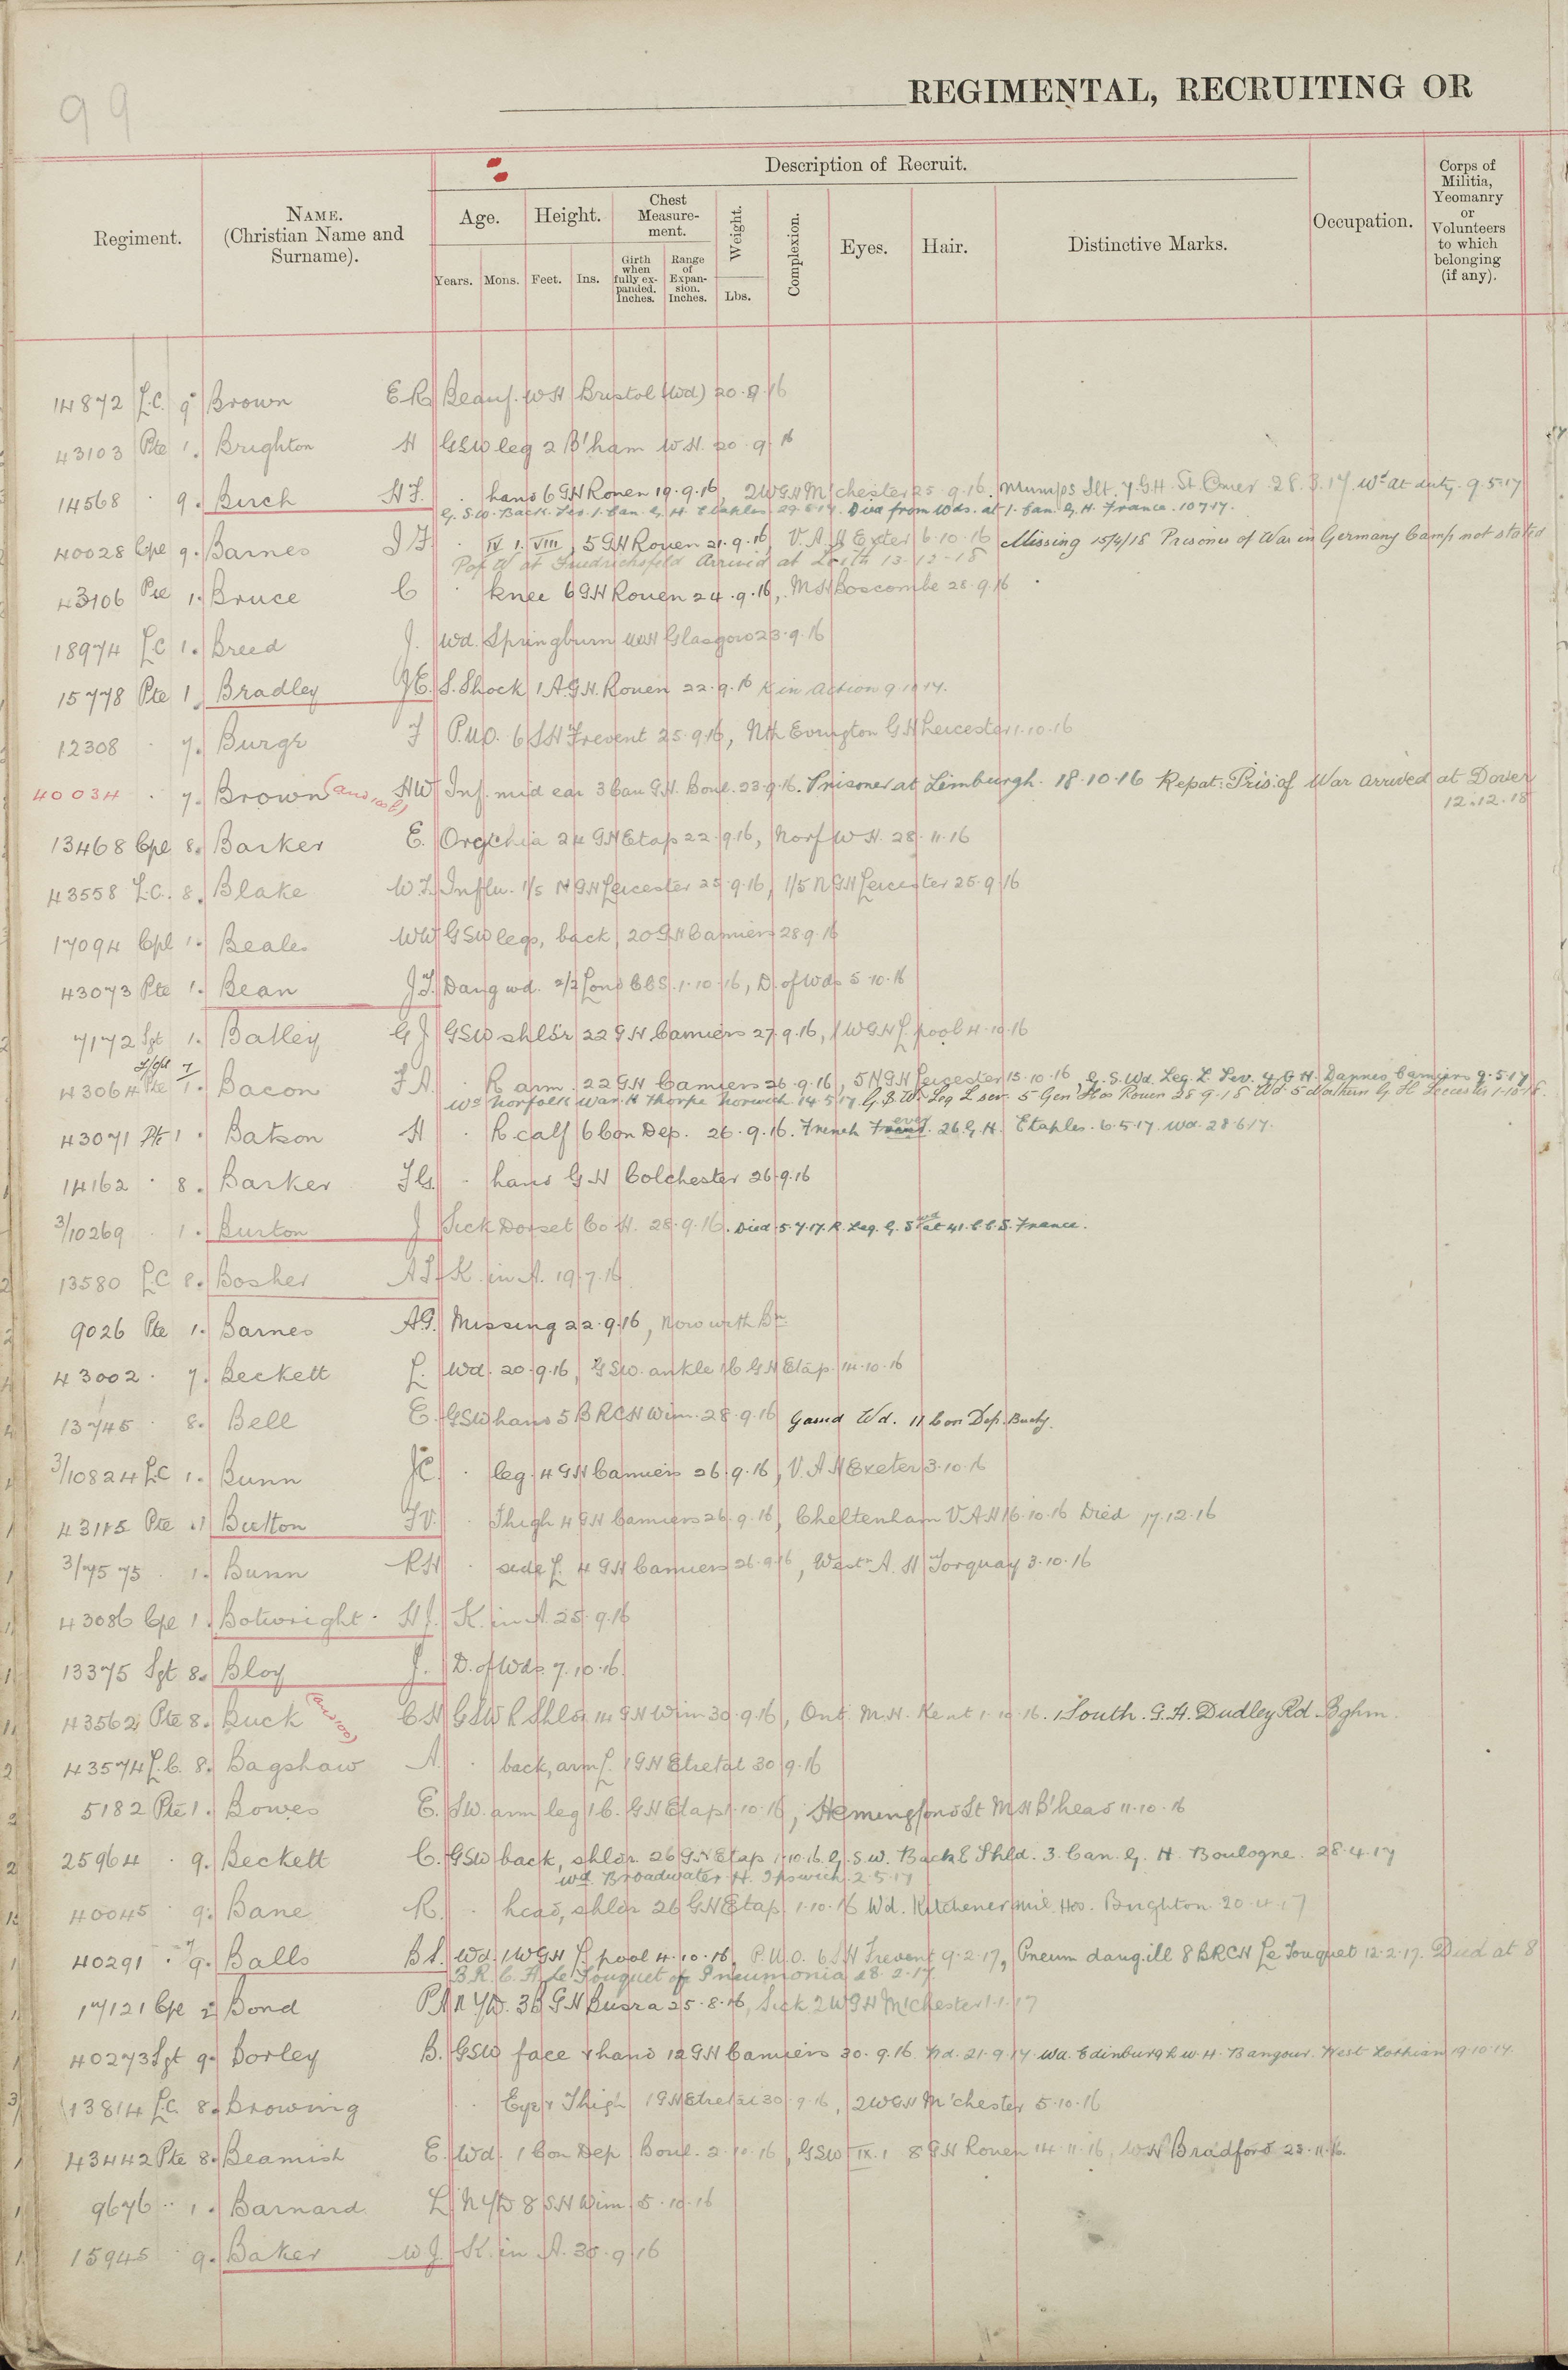 99
REGIMENTAL, RECRUITING OR
Regiment.
NAME.
(Christian Name and
Surname).
Description of Recruit.
Age.
Years.
Mons.
Height.
Feet.
Ins.
Chest
Measure-
ment.
Girth
when
fully ex-
panded.
Inches.
Range
of
Expan-
sion.
Inches.
Weight.
Lbs.
Complexion.
Eyes.
Hair.
Distinctive Marks.
Occupation.
Corps of
Militia,
Yeomanry
or
Volunteers
to which
belonging
(if any).
14872 L.C. 9 Brown E R Beauf. W H Bristol (Wd) 20.9.16
43103 Pte 1. Brighton H GSW leg 2 B'ham W.H. 20.9.16
14568 . 9. Birch H J. . hand 6 GH Rouen 19.9.16, 2WGH M'chester 25.9.16. Mumps Slt. 7 G.H. St Omer. 28.3.17. Wd at duty. 9.5.17
G.S.W. Back. Sev. 1. Can. G. H. Etaples. 29.6.17. Died from Wds. at 1. Can. G. H. France. 10.7.17.
40028 Cpl 9. Barnes J F. . IV 1. VIII, 5 GH Rouen 21.9.16, V.A.H Exeter 6.10.16 Missing 15/4/18 Prisoner of War in Germany Camp not stated
P of W at Friedrichsfeld Arrived at Leith 13-12-18
43106 Pte 1. Bruce C . knee 6 GH Rouen 24.9.16, MH Boscombe 28.9.16
18974 LC 1. Breed J. Wd. Springburn WH Glasgow 23.9.16
15778 Pte 1. Bradley J E. S. Shock 1 A.G.H. Rouen 22.9.16 K in action 9.10.17.
12308 . 7. Burge J P.U.O. 6 SH Frevent 25.9.16, Nth Evington G H Leicester 1.10.16
40034 . 7. Brown (and 100b) H W Inf. mid ear 3 Can G.H. Boul. 23.9.16. Prisoner at Limburgh. 18.10.16 Repat: Pris: of War arrived at Dover
12.12.18
13468 Cpl 8. Barker E. Orchia 24 GH Etap 22.9.16, Norf W H. 28.11.16
43558 L.C. 8. Blake W. J. Influ. 1/5 N GH Leicester 25.9.16, 1/5 N GH Leicester 25.9.16
17094 Cpl 1. Beales WW GSW legs, back, 20 GH Camiers 28.9.16
43073 Pte 1. Bean J J. Dang wd. 2/2 Lond CCS. 1.10.16, D. of Wds 5.10.16
7172 Sgt 1. Batley G J GSW shldr 22 GH Camiers 27.9.16, 1 WGH L'pool 4.10.16
L/Cpl 7
43064 Pte 1. Bacon F A. . R arm. 22 GH Camiers 26.9.16, 5 N GH Leicester 15.10.16, G.S. Wd. Leg. L. Sev. 4. G H. Dannes Camiers 9.5.17
Wd Norfolk War. H Thorpe Norwich 14.5.17. G.S.W. Leg L sev. 5 Gen Hos Rouen 25.9.18 Wd. 5 Northern G H Leicester 1-10-18.
43071 Pte 1. Batson H . R. calf 6 Con Dep. 26.9.16. Trench Fever. 26. G. H. Etaples. 6.5.17. Wd. 28.6.17.
14162 . 8. Barker J G. . hand G H Colchester 26.9.16
3/10269 . 1. Burton J Sick Dorset Co H. 28.9.16. Died 5.7.17. R. Leg. G. S wd at 41. C. C. S. France.
13580 L.C 8. Bosher A S K. in A. 19.7.16
9026 Pte 1. Barnes A.G. Missing 22.9.16, Now with Bn
43002 . 7. Beckett L. Wd. 20.9.16, GSW. ankle 16 GH Etap. 14.10.16
13745 . 8. Bell E. GSW hand 5 BRCH Wim. 28.9.16 Gassd Wd. 11 Con Dep. Buchy.
3/10824 LC 1. Bunn J C. . leg 4 GH Camiers 26.9.16, V.A.H Exeter 3.10.16
43115 Pte 1 Button F V. . Thigh 4 GH Camiers 26.9.16, Cheltenham V.A.H 16.10.16 Died 17.12.16
3/7575 . 1. Bunn R H . side L. 4 GH Camiers 26.9.16, Westn A. H Torquay 3.10.16
43086 Cpl 1. Botwright. H J. K. in A. 25.9.16
13375 Sgt 8. Bloy J. D. of Wds 7.10.16.
43562 Pte 8. Buck (and 100) C H GSW R Shldr 14 GH Wim 30.9.16, Ont. M.H. Kent 1.10.16. 1 South. G. H. Dudley Rd. Bghm.
43574 L.C. 8. Bagshaw A. . back, arm L. 1 GH Etretat 30.9.16
5182 Pte 1. Bowes E. S.W. arm leg 1 C. GH Etap 1.10.16, Hemingford St MH B'head 11.10.16
25964 . 9. Beckett C. GSW back, shldr. 26 GH Etap 1.10.16. G.S.W. Back & Shld. 3. Can. G. H. Boulogne. 28.4.17
Wd Broadwater H. Ipswich 2.5.17
40045 . 9. Bane R. . head, shldr 26 GH Etap 1.10.16 Wd. Kitchener Mil. Hos. Brighton 20.4.17
40291 . 9. Balls B S. Wd. 1WGH L'pool 4.10.16, P.U.O. 6 SH Frevent 9.2.17, Pneum dang. ill 8 BRCH Le Touquet 12.2.17. Died at 8
B.R.C.H. Le Touquet of Pneumonia 18.2.17
17121 Cpl 2 Bond P A N.Y.D. 3B GH Busra 25.8.16, Sick 2WGH M'chester 1.1.17
40273 Sgt 9. Borley B. GSW face & hand 12 GH Camiers 30.9.16. Wd. 21.9.17. Wd. Edinburgh W.H. Bangour. West Lothian 19.10.17.
13814 L.C. 8. Browing . Eye & Thigh 1 GH Etretat 30.9.16, 2WGH M'chester 5.10.16
43442 Pte 8. Beamish E. Wd. 1 Con Dep Boul. 2.10.16, GSW IX.1 8 GH Rouen 14.11.16, WH Bradford 23.11.16.
9676 .. 1. Barnard L N.Y.D 8 SH Wim 5.10.16
15945 . 9. Baker W J. K. in A. 30.9.16